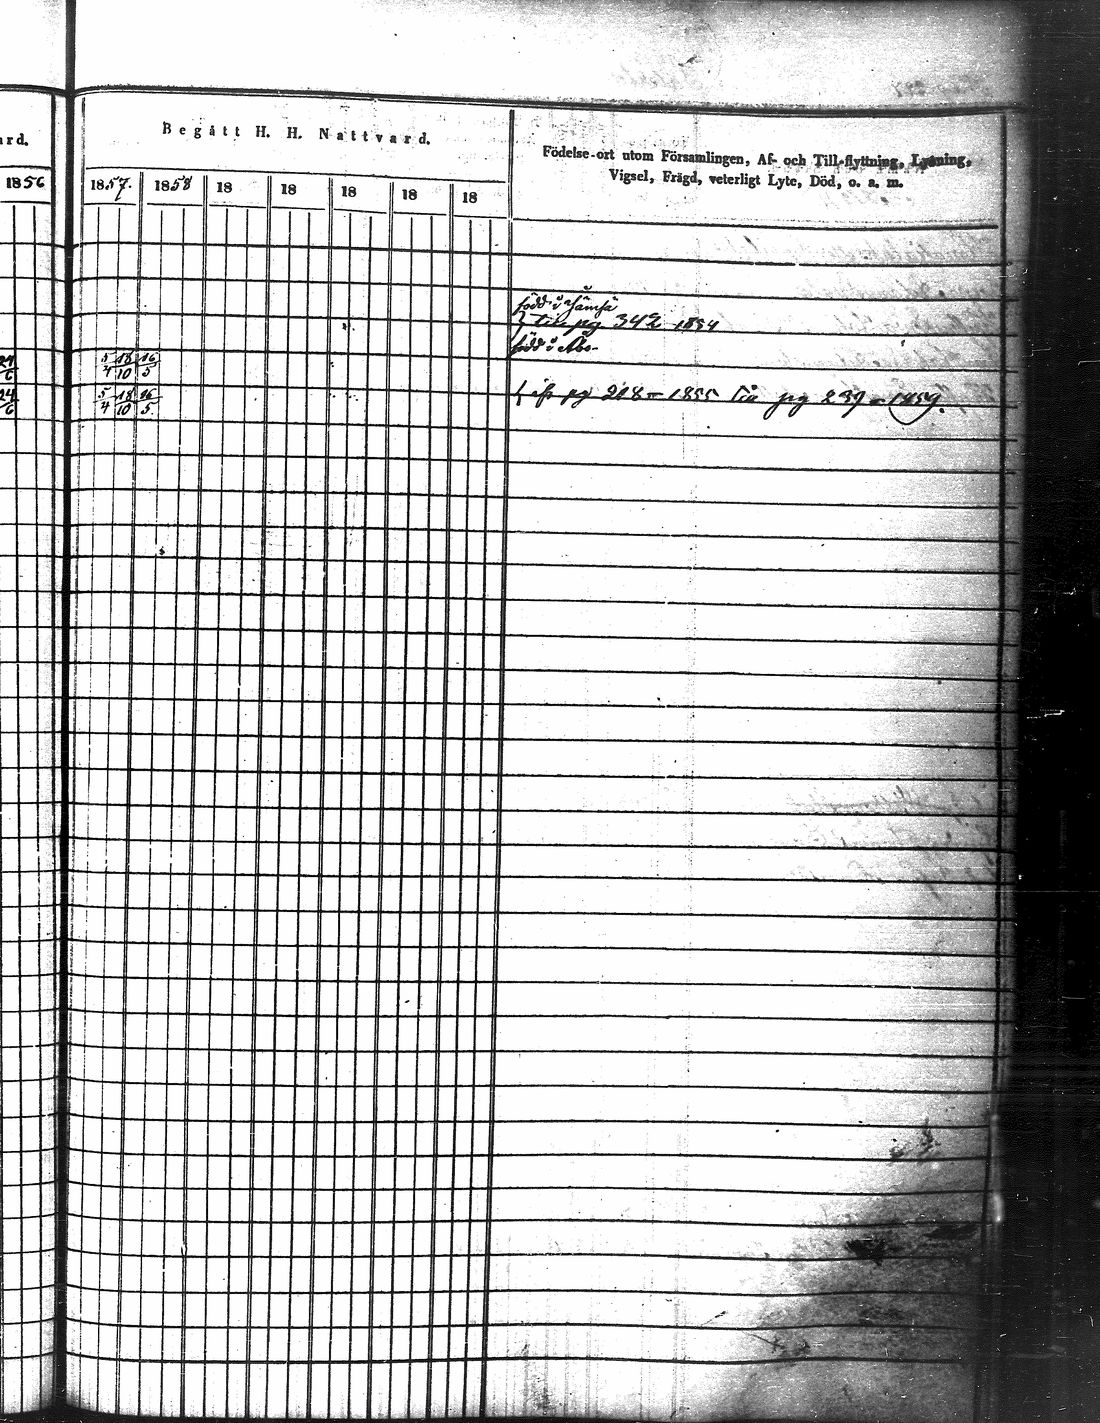 Begått H. H. Nattvard.
Födelse-ort utom Församlingen, Af- och Till-flyttning, Lysning,
Vigsel, Frägd, veterligt Lyte, Död, o. a. m.
1856 1857. 1858 18 18 18 18 18
född i Jämsä
till pg 342 1854
född i Åbo
24/6 5/4 18/10 16/5
24/6 5/4 18/10 26/5
pg 218 - 1855 till pg 239 - 1859.